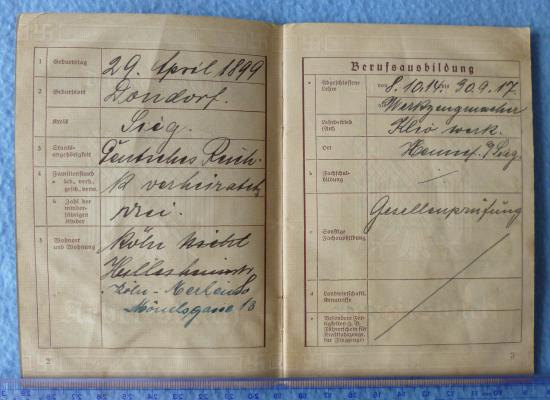 1 Geburtstag 29. April 1899
2 Geburtsort Dondorf.
Kreis Sieg.
3 Staats-
angehörigkeit Deutsches Reich.
4 Familienstand
a led., verh.,
gesch., verw. verheiratet
b Zahl der
minder-
jährigen
Kinder drei.
5 Wohnort
und Wohnung Köln
Köln-Merheim
2
Berufsausbildung
a Abgeschlossene
Lehre von 8.10.14 bis 30.9.17.
Werkzeugmacher
Lehrbetrieb
(Art) werk.
Ort Hennef. a/Sieg.
b Fachschul-
bildung
c Sonstige
Fachausbildung Gesellenprüfung
d Landwirtschaftl.
Kenntnisse
e Besondere Fer-
tigkeiten (z. B.
Führerschein für
Kraftfahrzeuge,
für Flugzeuge)
3